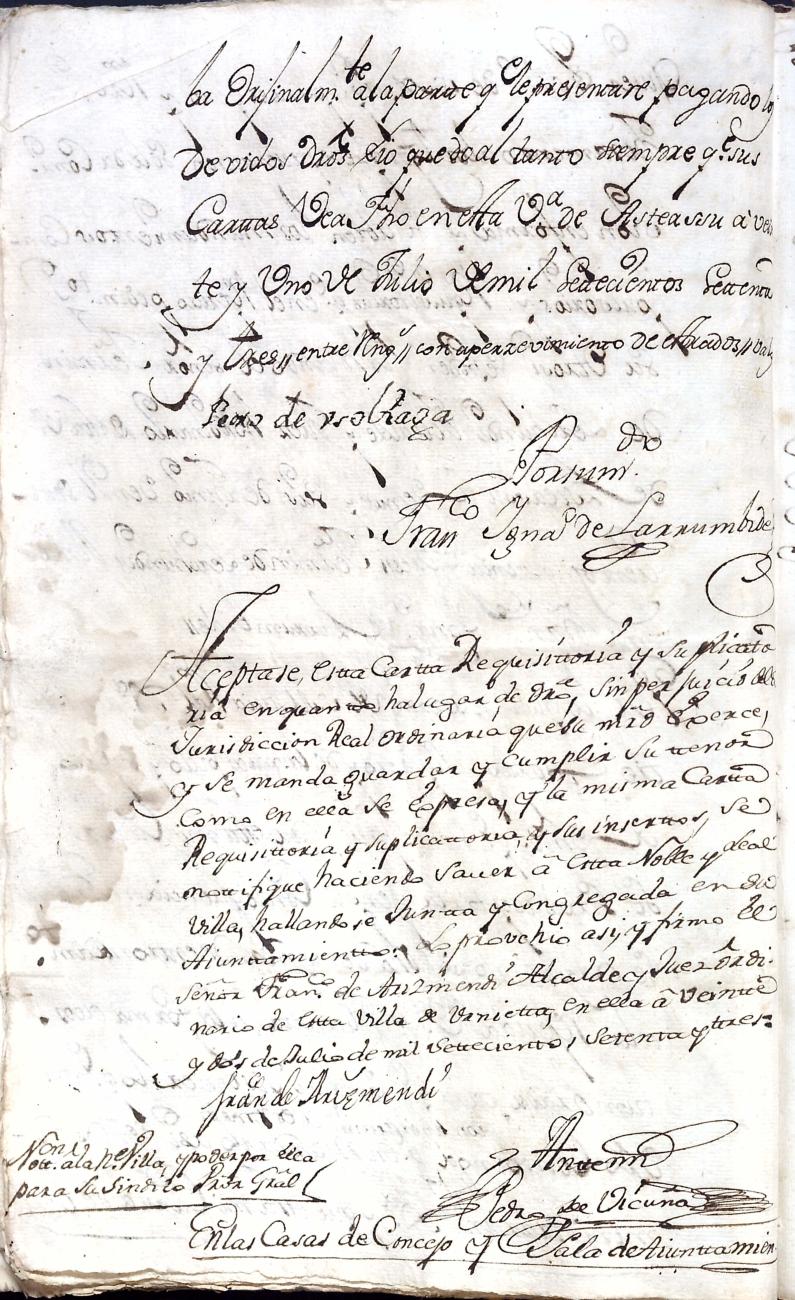 ba Orijinalm.te a la parte q.e le presentare pagando los
devidos dros, y io quedo al tanto siempre q.e sus
Carttas Vea Fho en esta V.a de Asteassu a vein
te y Uno de Julio de mil Settecientos Settenta
y tres,, entre Rng.s,, con apercevimiento de estrados,, Vala
Pedro de Ysoltzaga
Por su m.do
Fran.co Ygna.o de Larrumbide
Aceptase, estta Cartta Requisittoria y Suplicatto
ria en quantto ha lugar de dro, sin perjuicio de la
Jurisdiccion Real ordinaria que su mrd Exerce,
y se manda guardar y cumplir su tenor
como en ella se Expresa, y la misma Cartta
Requisittoria y suplicattoria, y sus insertos, se
nottifique haciendo Saver â Estta Noble y Leal
Villa, hallandose Juntta y Congregada en su
Aiunttamientto: Lo provehio asi, y firmo el
señor Fran.co de Arizmendi Alcalde y Juez ordi-
nario de Estta Villa de Urnietta, en ella â Veintte
y dos de Julio de mil Settecienttos, setenta y tres=
Fran.co de Arizmendi
Antte mi
Pedro de Vicuña
Nott.on a la N.e Villa, y poder por ella
para su Sindico Pror Gral
En las Casas de Concejo y Sala de Aiunttamien